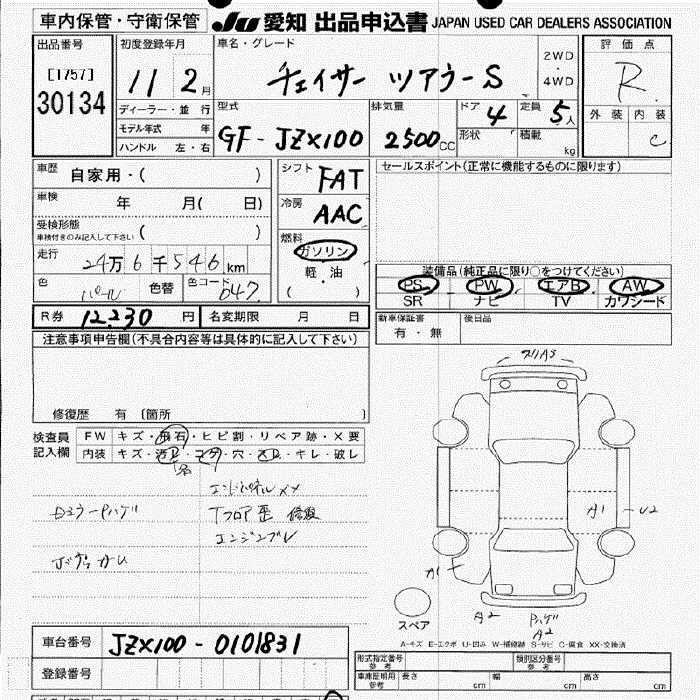 車内保管・守衛保管 JU 愛知 出品申込書 JAPAN USED CAR DEALERS ASSOCIATION
出品番号 初度登録年月 車名・グレード 評価点
[1757] 11 2月 チェイサー ツアラーS 2WD・4WD R
30134 ディーラー・並行 型式 排気量 ドア 定員 外装 内装
モデル年式 年 GF-JZX100 2500CC 4 5人 C
ハンドル 左・右 形状 積載 kg
車歴 自家用・( ) シフト FAT セールスポイント(正常に機能するものに限ります)
車検 年 月( 日) 冷房 AAC
受検形態 ( )
車検付きのみ記入して下さい
燃料 ガソリン
走行 24万6千546km 軽・油
( )
装備品(純正品に限り○をつけてください)
PS PW エアB AW
SR ナビ TV カワシード
色 パール 色替 色コード 647
R券 12,230円 名変期限 月 日 新車保証書 有・無 後日品
注意事項申告欄(不具合内容等は具体的に記入して下さい)
修復歴 有 〔箇所 〕
検査員 FW キズ・飛石・ヒビ割・リペア跡・X要
記入欄 内装 キズ・汚レ・コゲ・穴・スレ・キレ・破レ
エンドパネルXX
Tフロア歪 修復
A1 U2
スペア
A2 ハゲ
A2
A-キズ E-エクボ U-凹み W-補修跡 S-サビ C-腐食 XX-交換済
車台番号 JZX100-0101831
登録番号
形式指定番号 参考 類別区分番号 参考
車庫証明用 参考 長さ cm 幅 cm 高さ cm